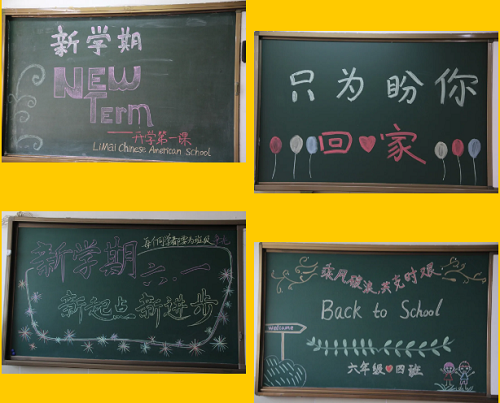 新学期
NEW
Term
——开学第一课
LiMai Chinese American School
只为盼你
回家
新学期
六.一
新起点 新进步
乘风破浪 共克时艰
Back to School
welcome
六年级 四班